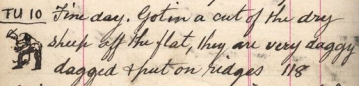 TU 10 Fine day. Got in a cut of the dry
sheep off the flat, they are very daggy
dagged & put on ridges 118